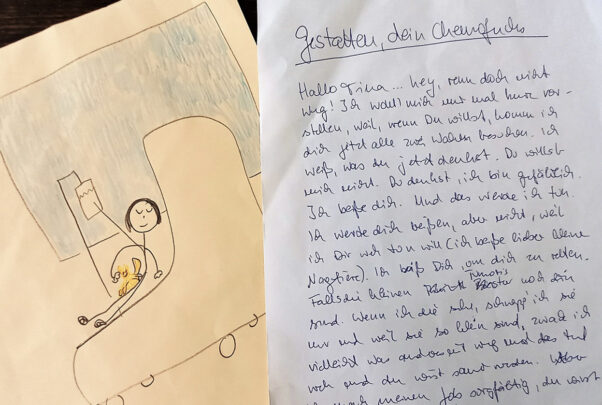 Gestatten, dein Chemofuchs
Hallo Tina... hey, renn doch nicht
weg! Ich wollt mich nur mal kurz vor-
stellen, weil, wenn Du willst, komm ich
dich jetzt alle zwei Wochen besuchen. Ich
weiß, was du jetzt denkst. Du willst
mich nicht. Du denkst, ich bin gefährlich.
Ich beiße dich. Und das werde ich tun.
Ich werde dich beißen, aber nicht, weil
ich Dir weh tun will (ich beiße lieber kleine
Nagetiere). Ich beiß Dich, um dich zu retten.
Falls die kleinen Tumoris noch drin
sind. Wenn ich die sehe, schnapp ich sie
mir und weil sie so klein sind, zwick ich
vielleicht was anderes mit weg und das tut
weh und du wirst sauer werden.
meinen Job sorgfältig, du wirst